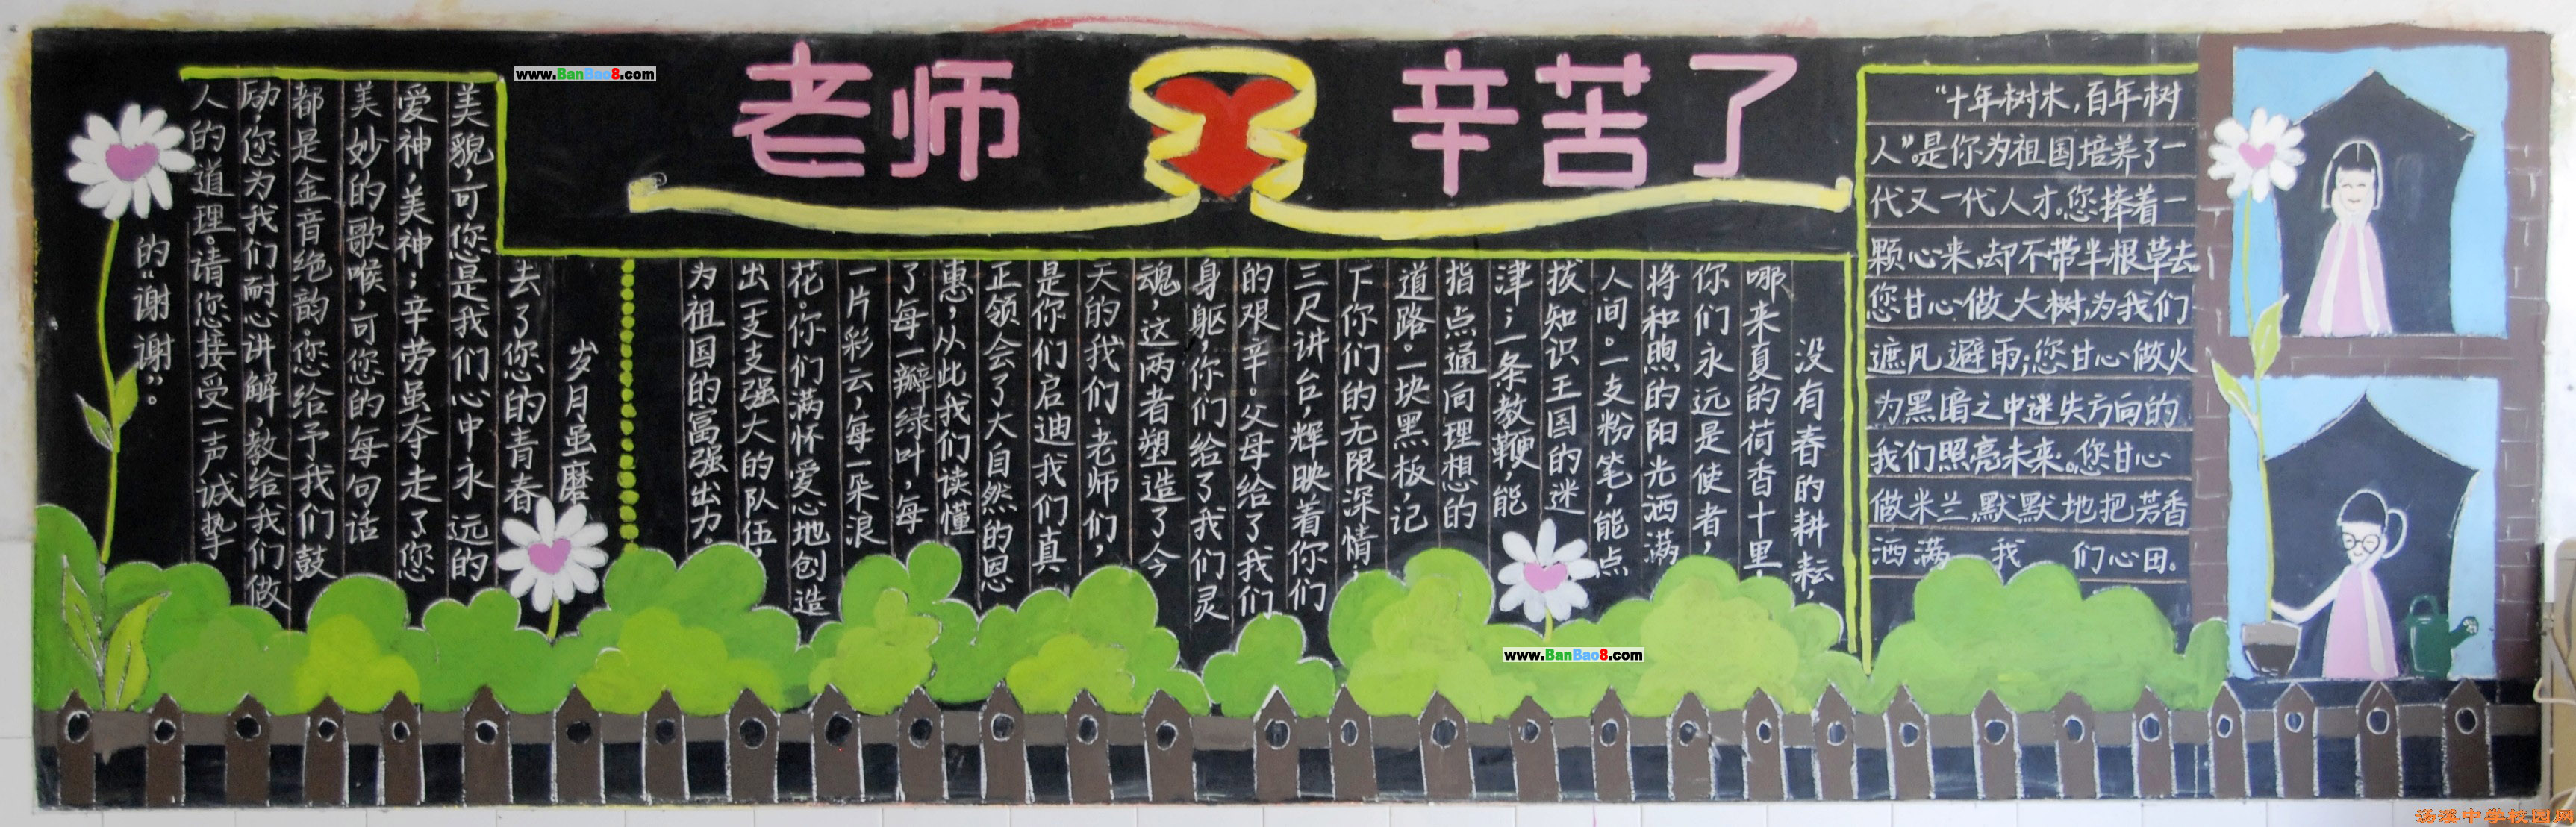 老师 辛苦了
www.BanBao8.com
“十年树木，百年树
人”。是你为祖国培养了一
代又一代人才。您捧着一
颗心来，却不带半根草去。
您甘心做大树，为我们
遮风避雨；您甘心做火
为黑暗之中迷失方向的
我们照亮未来。您甘心
做米兰，默默地把芳香
洒满我们心田。
没有春的耕耘，
哪来夏的荷香十里，
你们永远是使者，
将和煦的阳光洒满
人间。一支粉笔，能点
拔知识王国的迷
津；一条教鞭，能
指点通向理想的
道路。一块黑板，记
下你们的无限深情，
三尺讲台，辉映着你们
的艰辛。父母给了我们
身躯，你们给了我们灵
魂，这两者塑造了今
天的我们。老师们，
是你们启迪我们真
正领会了大自然的恩
惠，从此我们读懂
了每一瓣绿叶，每
一片彩云，每一朵浪
花。你们满怀爱心地创造
出一支支强大的队伍，
为祖国的富强出力。
岁月虽磨
去了您的青春
美貌，可您是我们心中永远的
爱神，美神；辛劳虽夺走了您
美妙的歌喉，可您的每句话
都是金音绝韵。您给予我们鼓
励，您为我们耐心讲解，教给我们做
人的道理。请您接受一声诚挚
的“谢谢”。
www.BanBao8.com